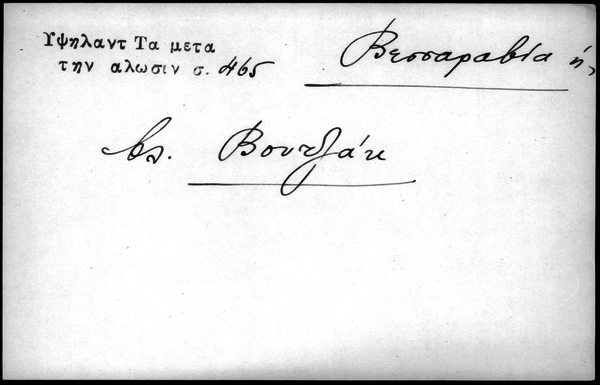 Υψηλαντ Τα μετα
την αλωσιν σ. 465
Βεσσαραβία ἡ,
βλ. Βουτζάκ